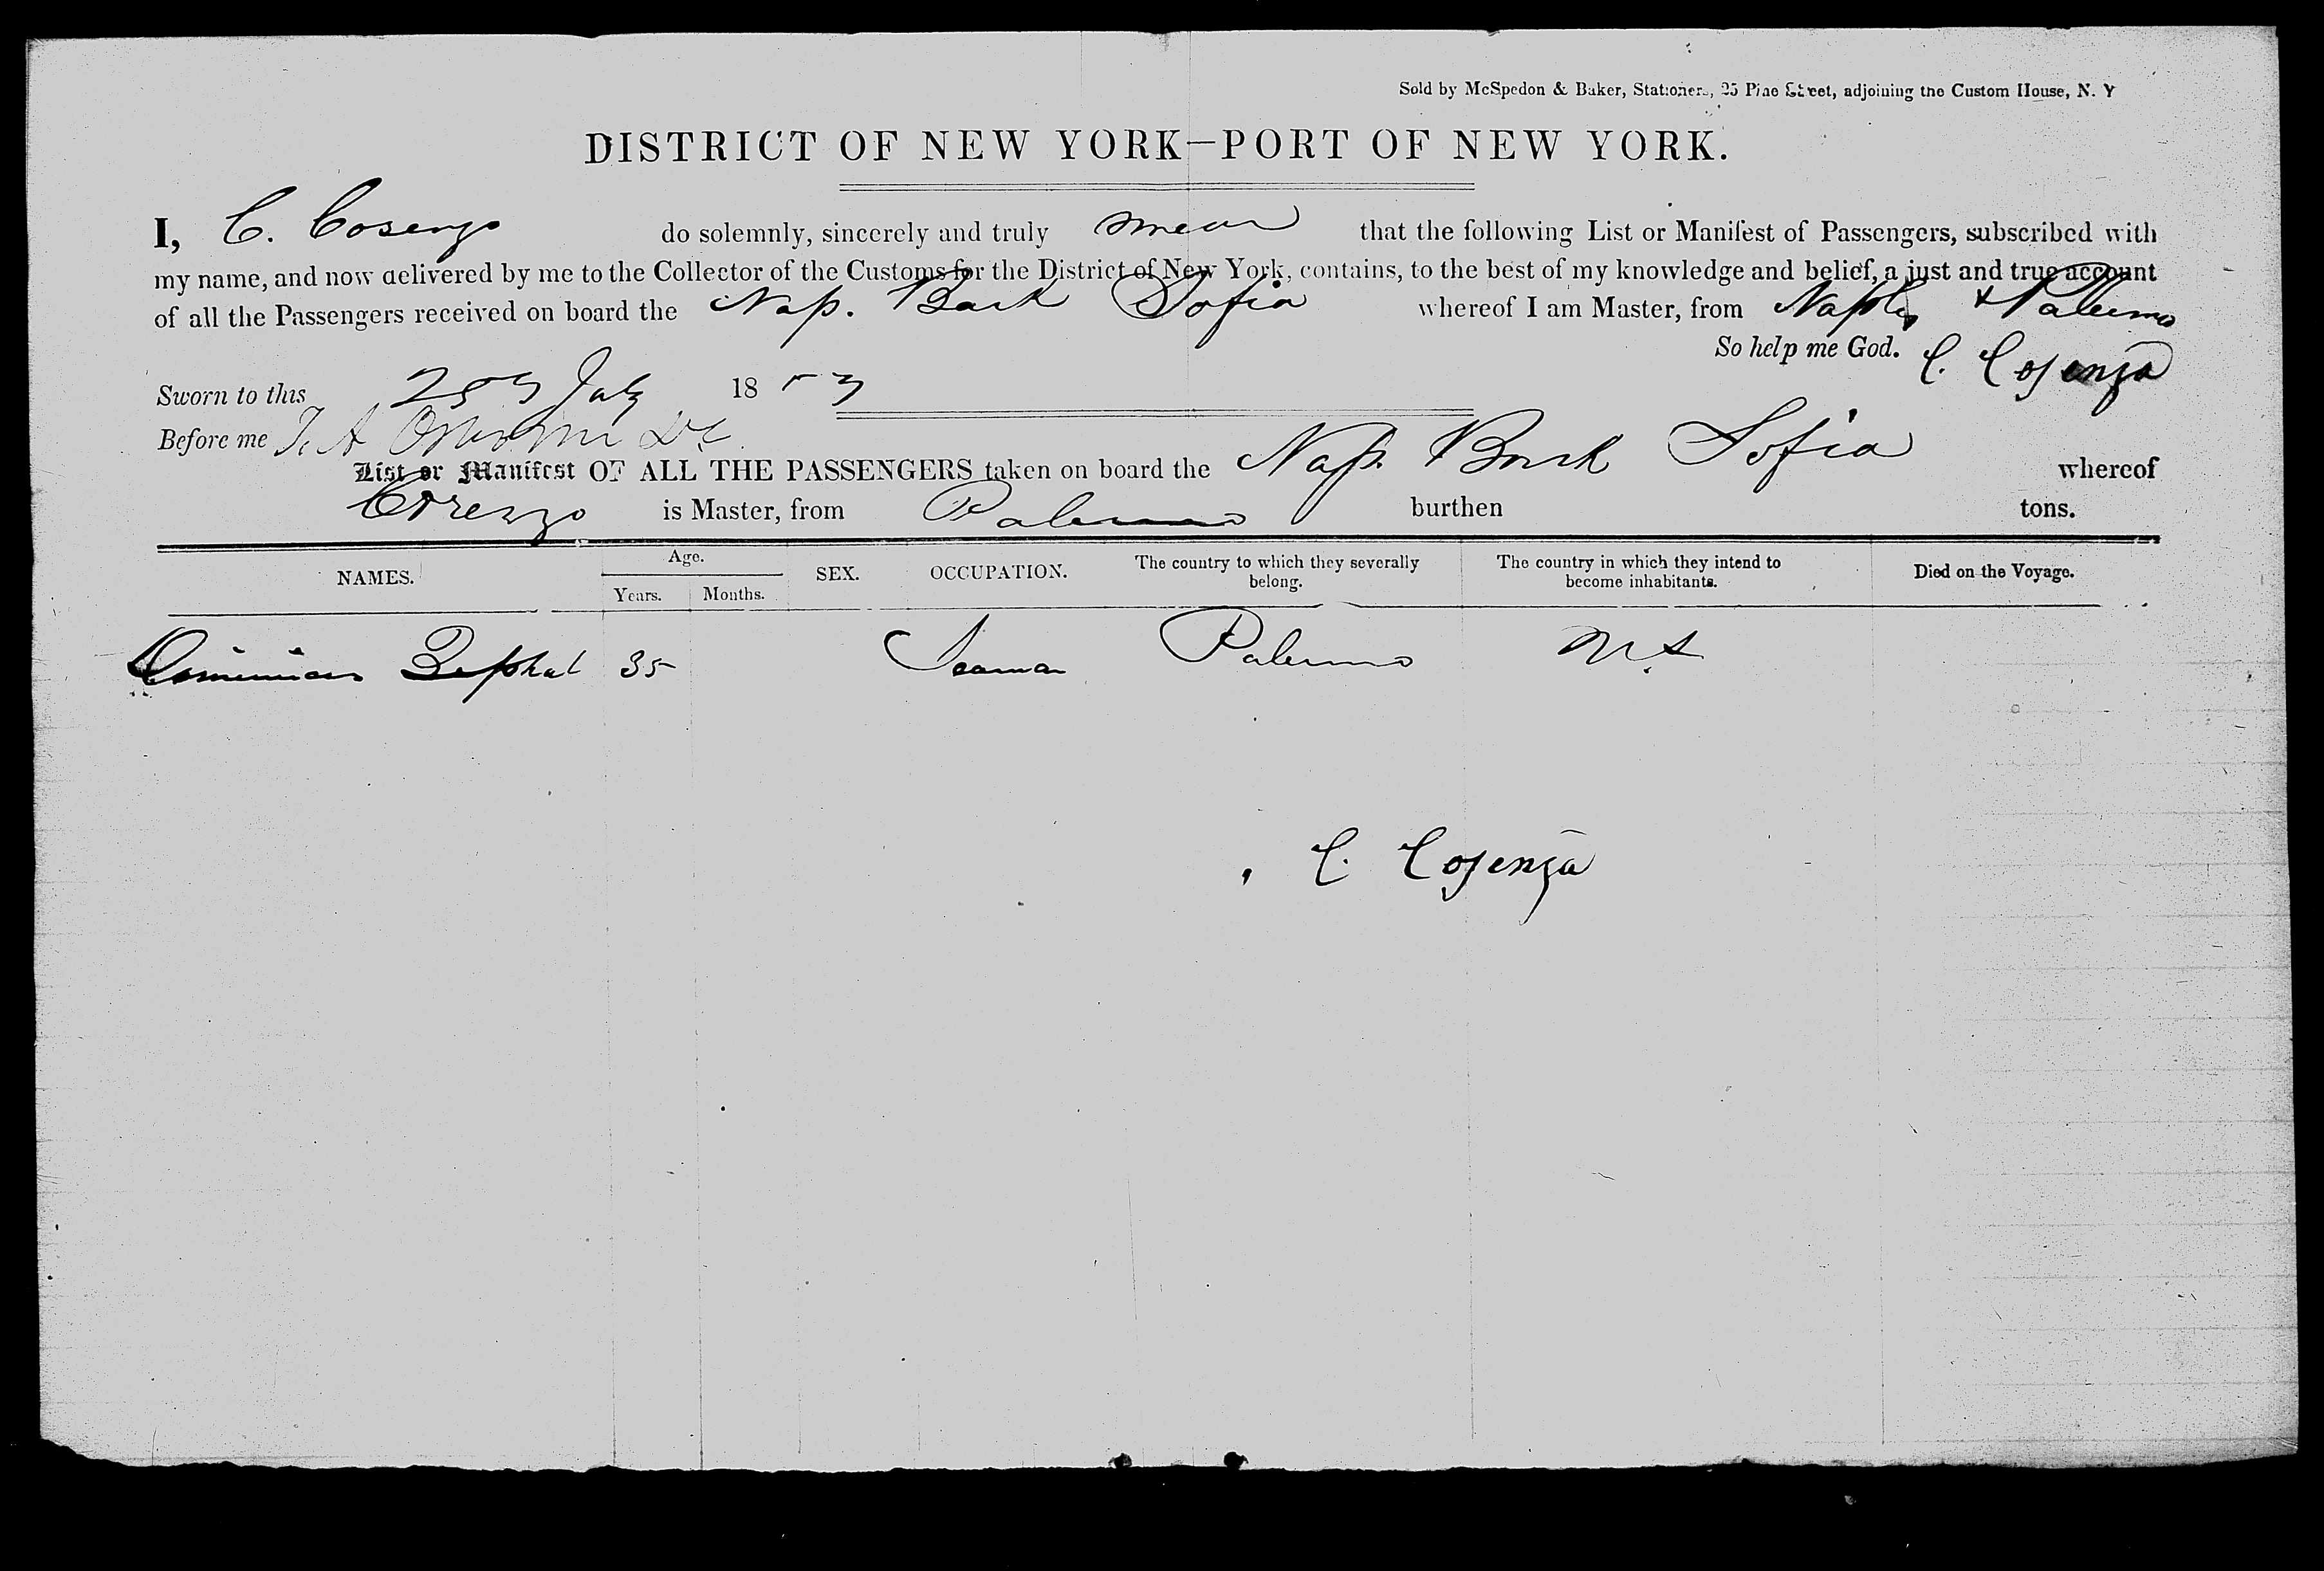 Sold by McSpedon & Baker, Stationers, 25 Pine Street, adjoining the Custom House, N. Y
DISTRICT OF NEW YORK—PORT OF NEW YORK.
I, C. Cosenzo do solemnly, sincerely and truly swear that the following List or Manifest of Passengers, subscribed with
my name, and now delivered by me to the Collector of the Customs for the District of New York, contains, to the best of my knowledge and belief, a just and true account
of all the Passengers received on board the Nap. Bark Sofia whereof I am Master, from Naples & Palermo
So help me God. C. Cosenza
Sworn to this 25 July 1853
Before me
List or Manifest OF ALL THE PASSENGERS taken on board the Nap. Bark Sofia whereof
is Master, from Palermo burthen tons.
NAMES. Age. Years. Months. SEX. OCCUPATION. The country to which they severally belong. The country in which they intend to become inhabitants. Died on the Voyage.
35 Seaman Palermo
C. Cosenza